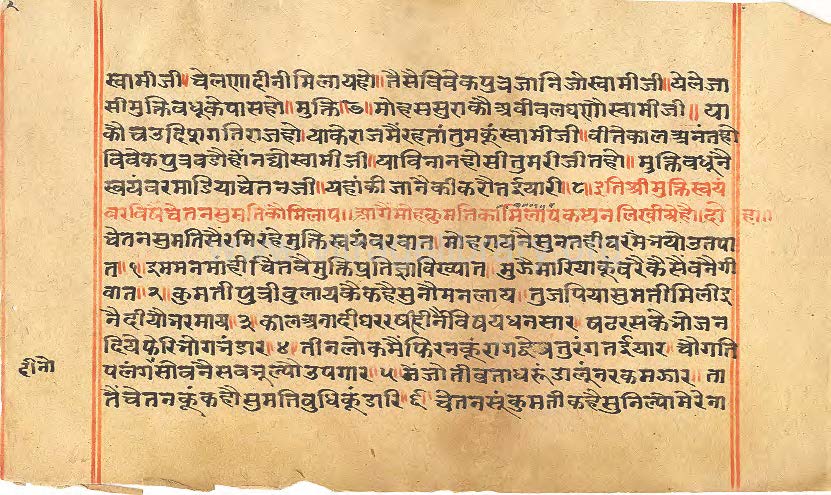 स्वामीजी॥ चेलणादीनीमिलायहो॥ तैसेविवेकपुत्रजानिजोस्वामीजी॥ येलेजा
सीमुक्तिवधूकेपासहो॥ मुक्ति॰७॥ मोहससुराकौअवीबलघणौस्वामीजी॥ या
कौचउदिषगतिराजहो॥ याकेराजमैरहतांतुमकूंस्वामीजी॥ वीतेकालअनंतहो
विवेकपुत्रवडौहै स्वामीजी॥ याविनानहीसीतुमरीजीतहो॥ मुक्तिवधूनै
स्वयंवरमाडियाचेतनजी॥ यहांकीजानैकीकरौतईयारी॥८॥ इतिश्रीमुक्तिस्वयं
वरविषैचेतनसुमतिकौमिलाप॥ आगैमोहकुमतिकामिलापकथनलिखीयेहै॥ दो हा॥
चेतनसुमतिसैरमिरहेमुक्तिस्वयंवरवात॥ मोहरायनैसुनतहीघरमैभयोउतपा
त॥१॥ इममनमाहीचिंतवैमुक्तिप्रतिज्ञाविख्यात॥ मुझैमारियाकूंवरैकैसैंवनैगी
वात॥२॥ कुमतीपुत्रीवुलायकैकहैसुनौमनलाय॥ तुजपियासुमतीमिलीइ
नैदीयौभरमाय॥३॥ कालअनादीघररषहीनैविषयधनसार॥ षटरसकेभोजन
दियेफेरिभोगभंडार॥४॥ तीनलोकमैफिरनकूंरागद्वेषतुरंगतईयार॥ चौगति
पलंगसोवनैसव उपगार॥५॥ मैजोतीव्रताधरूंडालूंनरकमजार॥ ता
तैंचेतनकूंकहौसुमतिवुधिकूंडारि॥६॥ चेतनसूंकुमतीकहैसुनि मेरेना
दीनो